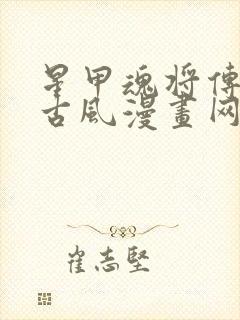 星甲魂将傳
古風漫畫网
崔志堅